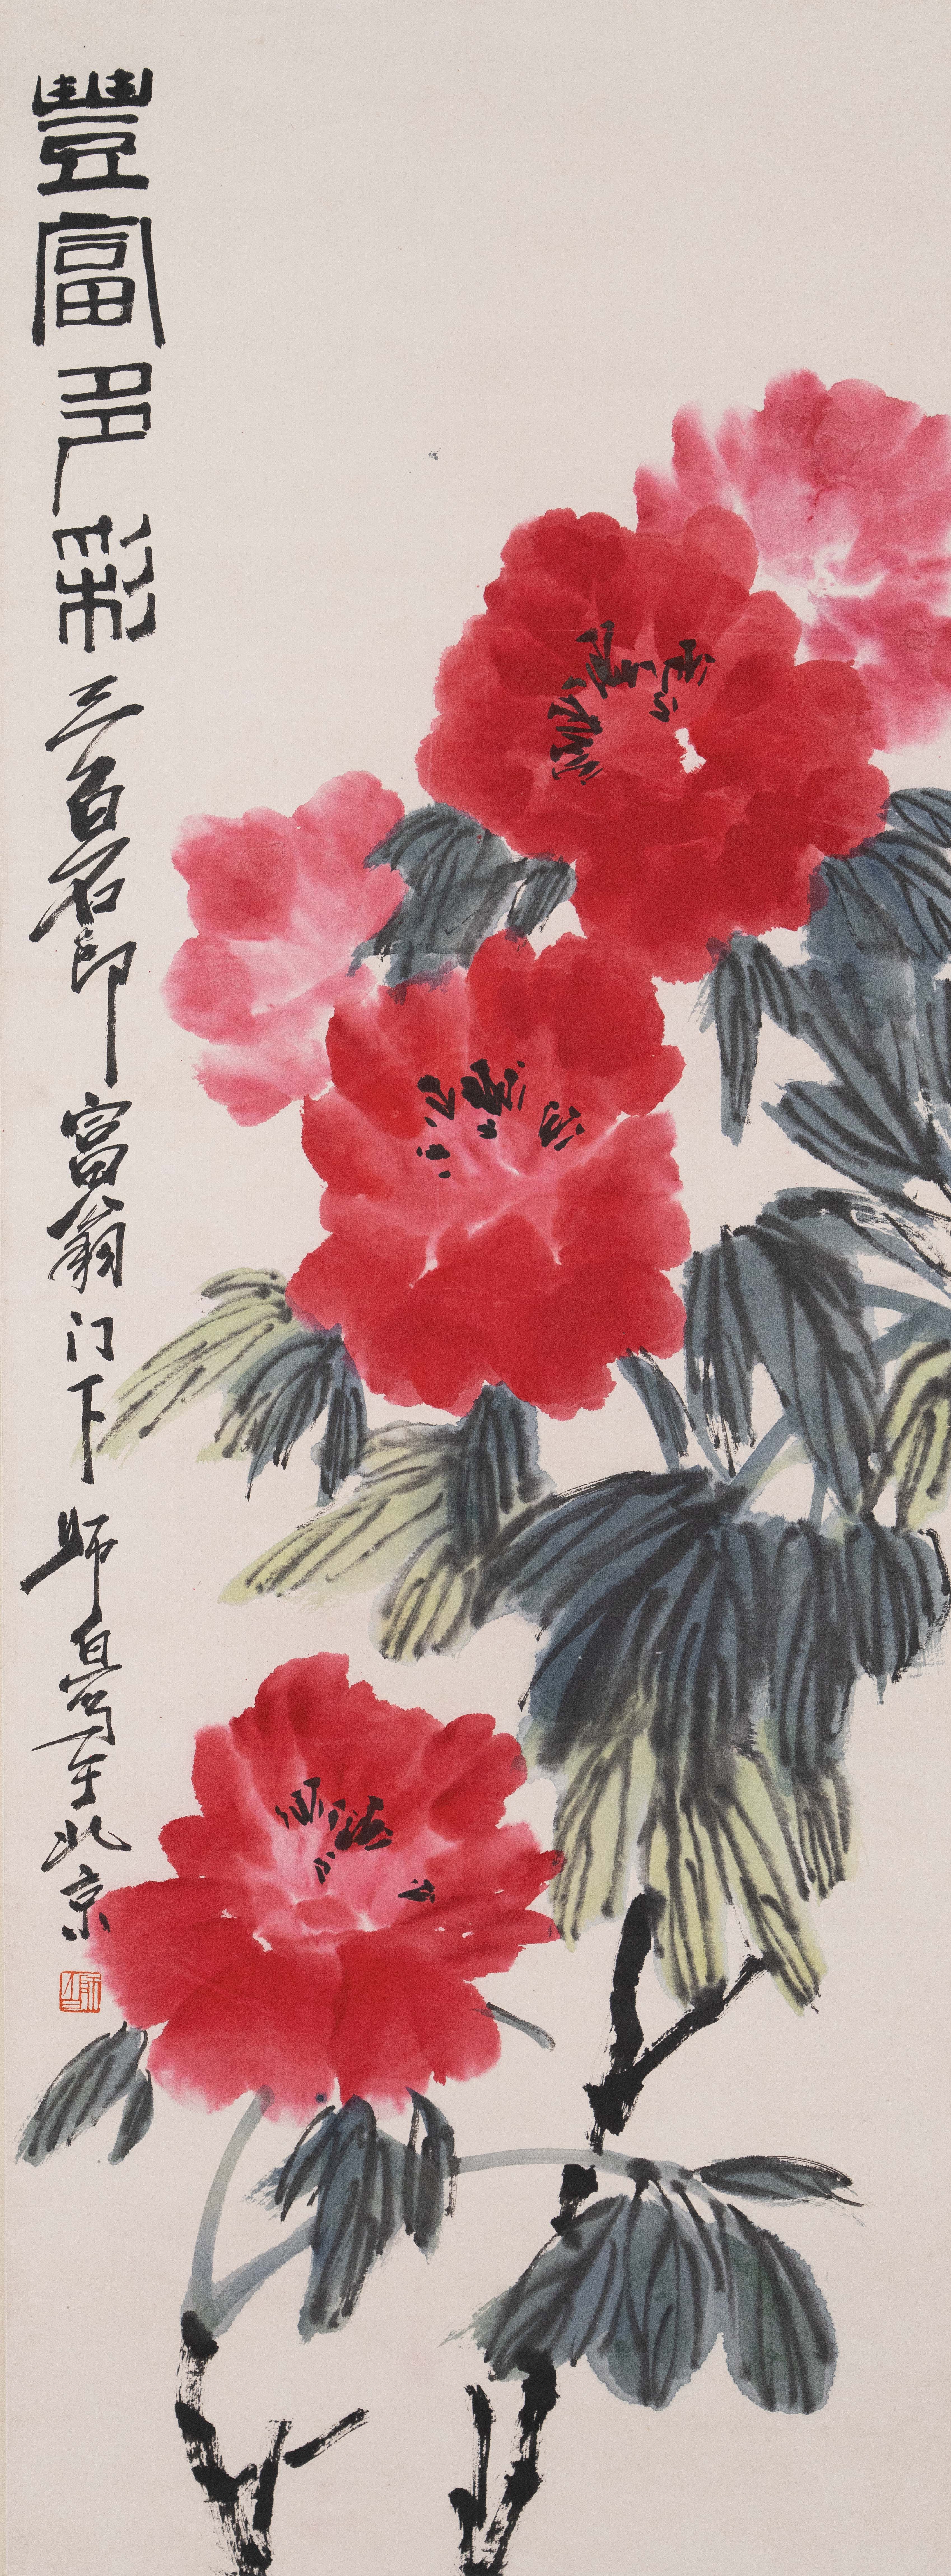 豐富多彩三百石印富翁门下师白写于北京